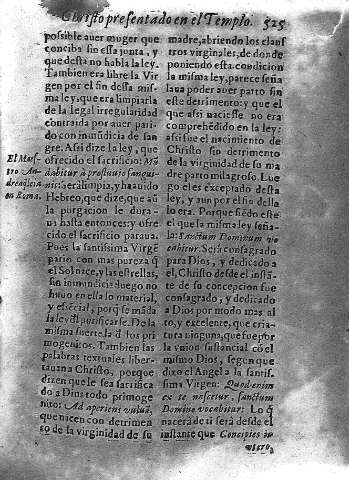 Christo presentado en el Templo. 525
possible auer muger que
conciba sin essa junta, y
que desta no habla la ley.
Tambien era libre la Vir
gen por el fin dessa mis-
ma ley, que era limpiarla
de la legal irregularidad
contraida por auer pari-
do con inmundicia de san
gre. Assi dize la ley, que
ofrecido el sacrificio: Mū
dabitur à profluuio sangui-
nis: aera limpia, y ha auido
Hebreo, que dize, que aū
la purgacion le dura-
ua hasta entonces: y ofre
cido el sacrificio paraua.
Pues la santissima Virgē
pario con mas pureza q̄
el Sol nace, y las estrellas,
sin inmundicia: luego no
huuo en ella lo material,
y essēcial, porq̄ se māda
la ley dl purificarse. De la
misma suerte la d los pri
mogenitos. Tambien las
palabras textuales liber-
tauan a Christo, porque
dizen que le sea sacrifica
do a Dios todo primoge
nito: Ad aperiens vuluā,
que nacen con detrimen
to de la virginidad de su
El Maes-
tro An-
en Roma.
madre, abriendo los claus
tros virginales, de donde
poniendo esta condicion
la misma ley, parece seña
laua poder auer parto sin
este detrimento: y que el
que assi naciesse no era
comprehēdido en la ley:
assi fue el nacimiento de
Christo sin detrimento
de la virginidad de su ma
dre parto milagroso. Lue
go el es exceptado desta
ley, y aun por el fin della
lo era. Porque siēdo este
el que la misma ley seña-
la: Sanctum Dominum vo
cabitur. Será consagrado
para Dios, y dedicado a
el, Christo desde el instā
te de su concepcion fue
consagrado, y dedicado
a Dios por modo mas al
to, y excelente, que cria-
tura ninguna, que fue por
la vnion sustancial cō el
mismo Dios, segun que
dixo el Angel a la santis-
sima Virgen: Quod enim
ex te nascetur, sanctum
Domino vocabitur: Lo q̄
nacerá de ti será desde el
instante que Concipies in
vtero,